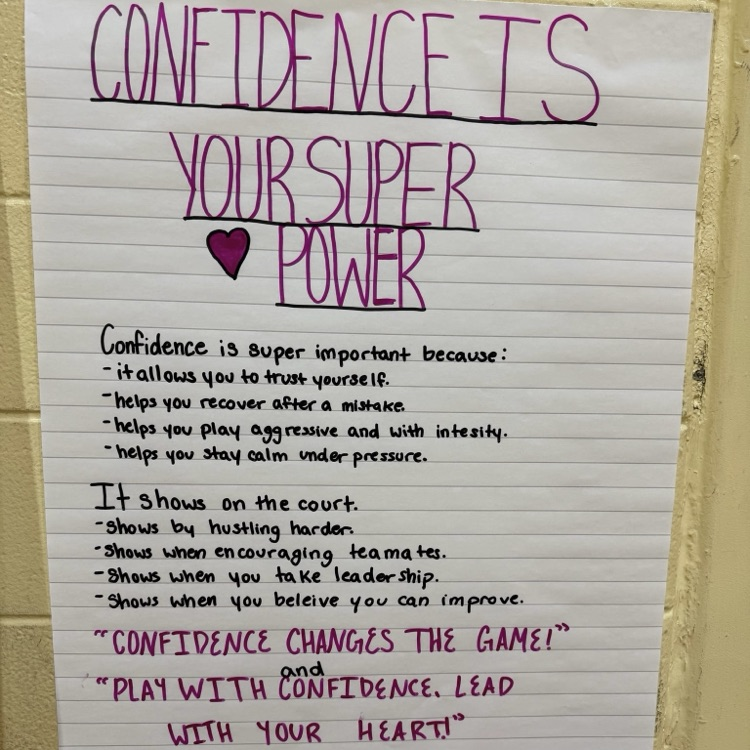 CONFIDENCE IS
YOUR SUPER
POWER
Confidence is super important because:
- it allows you to trust yourself.
- helps you recover after a mistake.
- helps you play aggressive and with intesity.
- helps you stay calm under pressure.
It shows on the court.
- shows by hustling harder.
- shows when encouraging teamates.
- shows when you take leadership.
- shows when you beleive you can improve.
"CONFIDENCE CHANGES THE GAME!"
and
"PLAY WITH CONFIDENCE. LEAD
WITH YOUR HEART!"